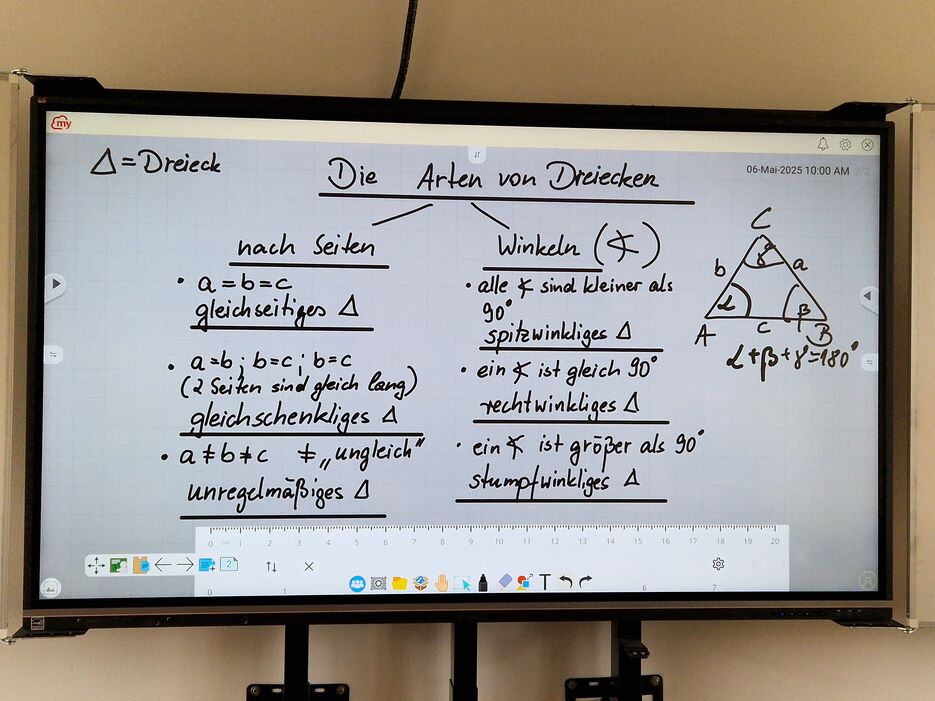 my
06-Mai-2025 10:00 AM 2/2
Δ = Dreieck
Die Arten von Dreiecken
nach Seiten
• a = b = c
gleichseitiges Δ
• a=b ; b=c ; b=c
(2 Seiten sind gleich lang)
gleichschenkliges Δ
• a ≠ b ≠ c ≠ „ungleich“
unregelmäßiges Δ
Winkeln (∢)
• alle ∢ sind kleiner als
90°
spitzwinkliges Δ
• ein ∢ ist gleich 90°
rechtwinkliges Δ
• ein ∢ ist größer als 90°
stumpfwinkliges Δ
C
b γ a
α β
A c B
α+β+γ=180°
0 cm 1 2 3 4 5 6 7 8 9 10 11 12 13 14 15 16 17 18 19 20
2
T
0 1 6 7